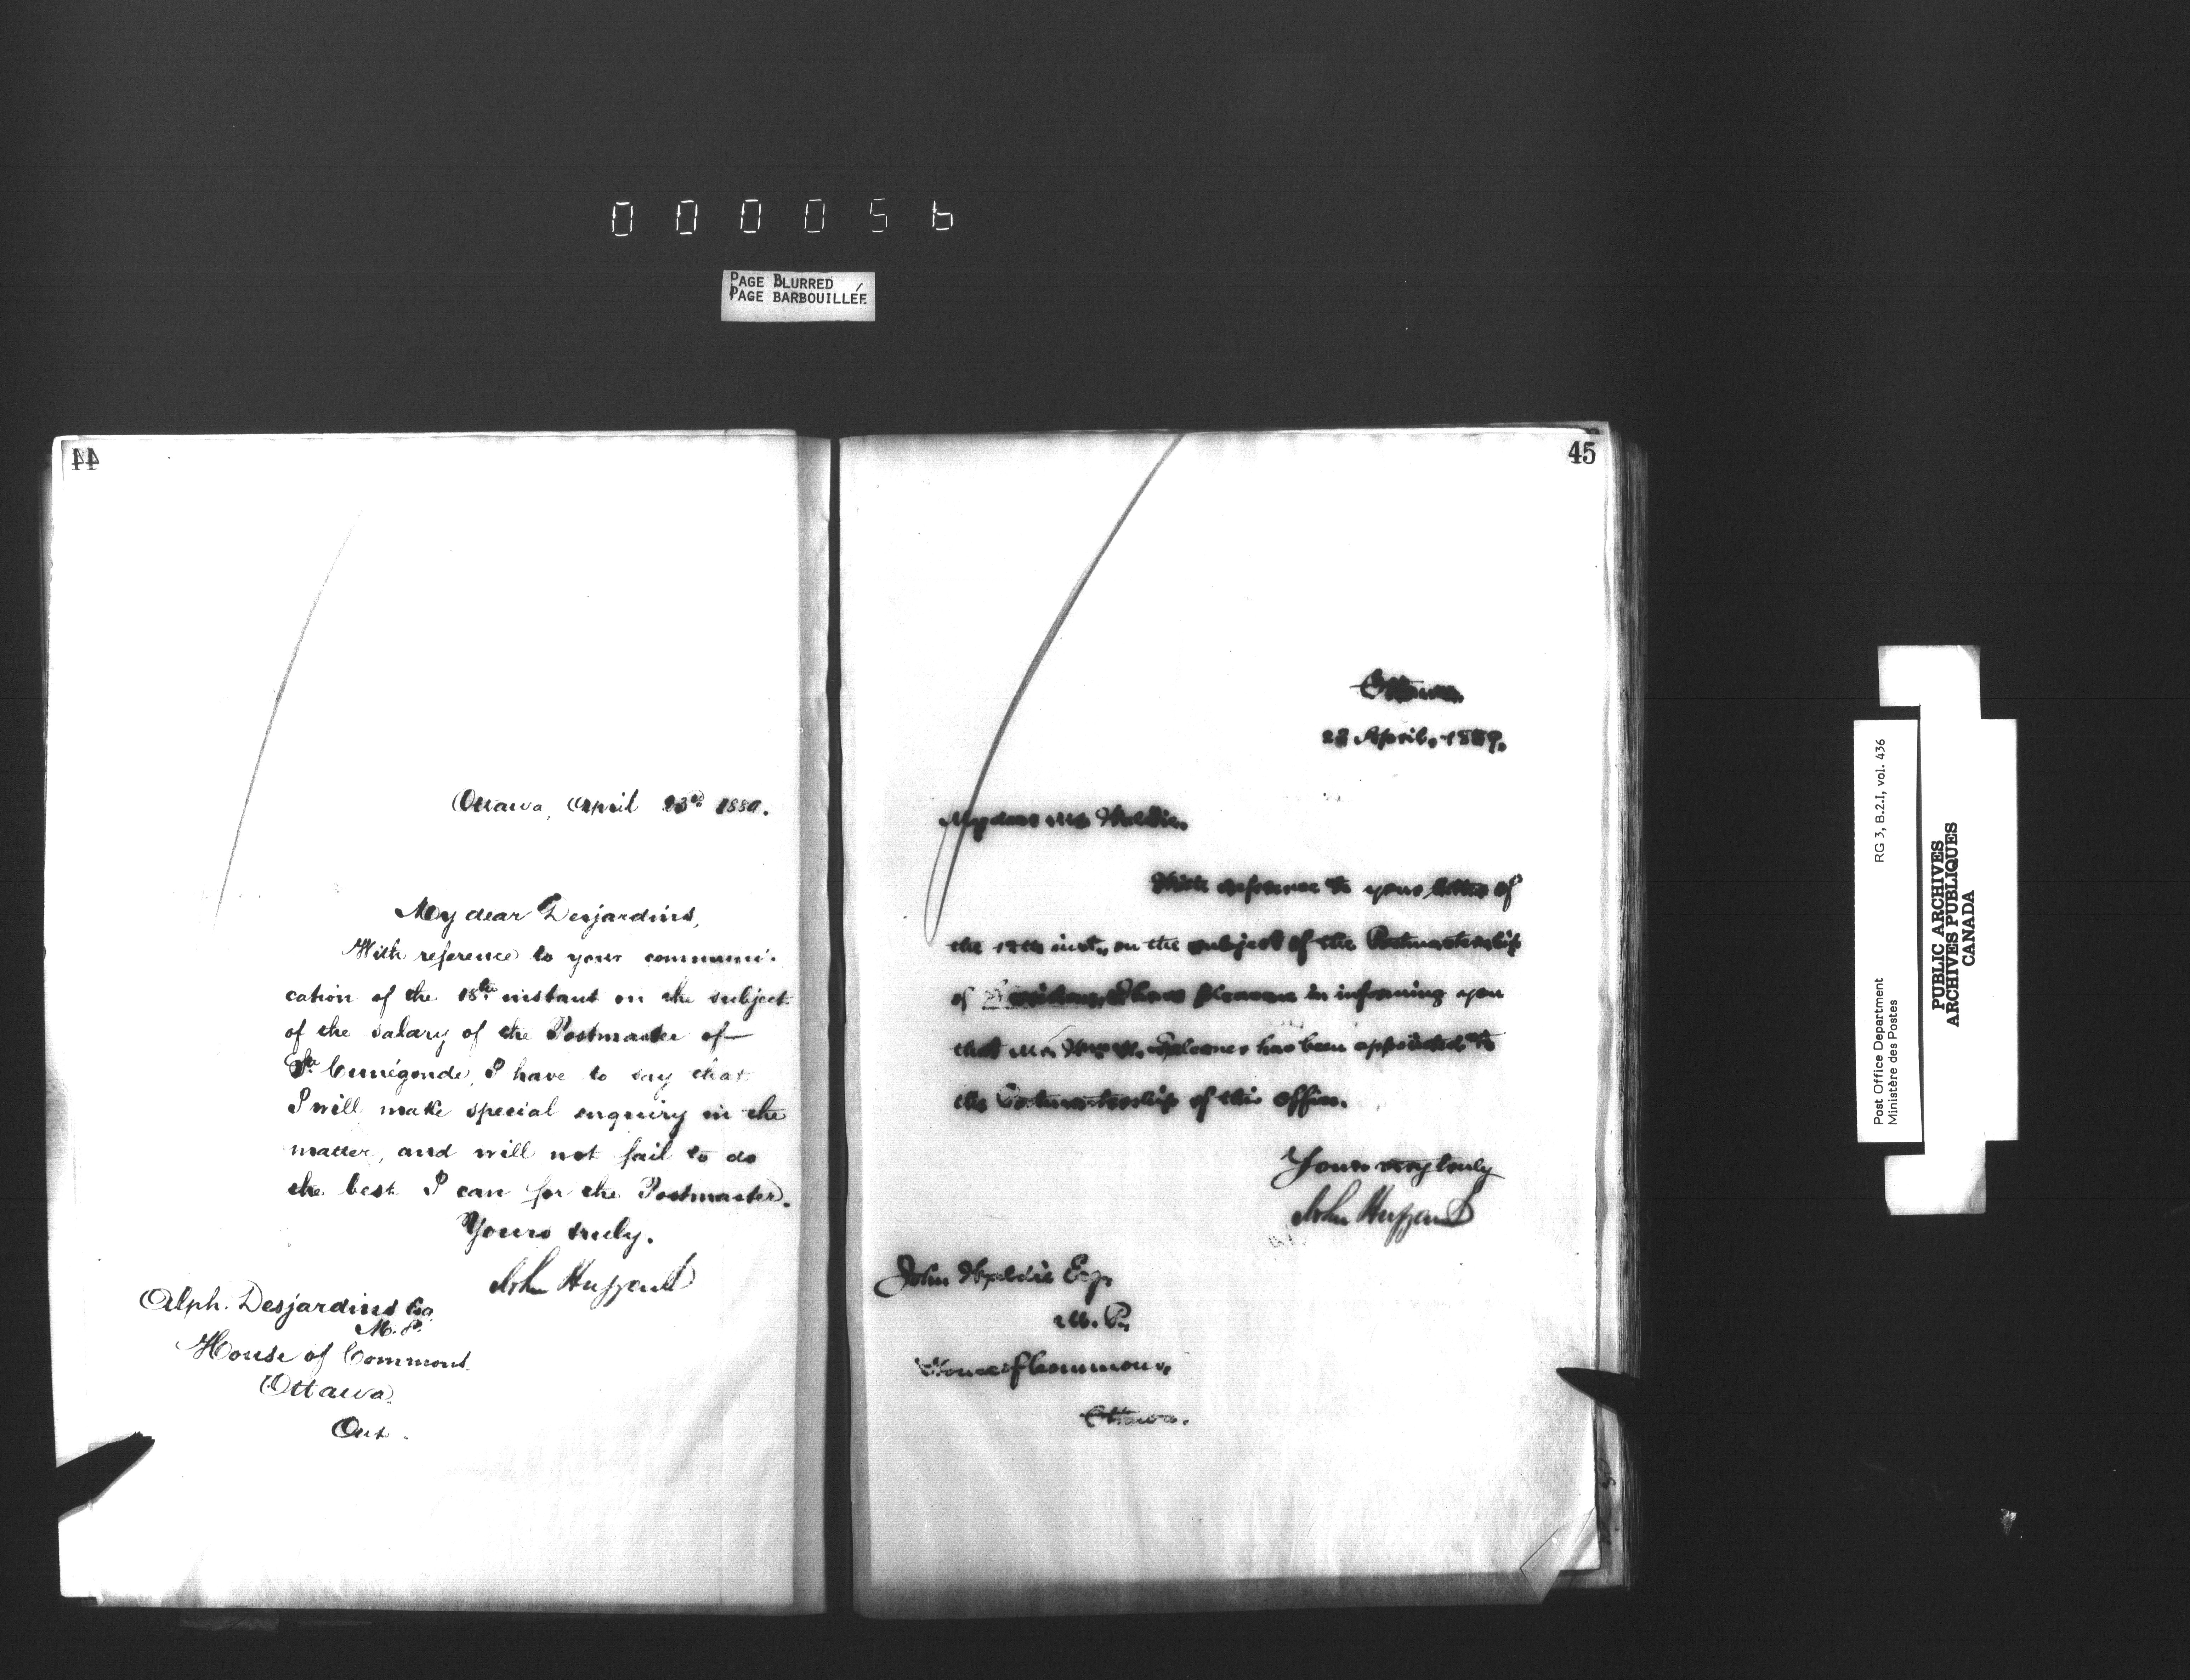 000056
PAGE BLURRED
PAGE BARBOUILLÉE
44
Ottawa, April 23rd 1889.
My dear Desjardins,
With reference to your communi-
cation of the 18th instant on the subject
of the salary of the Postmaster of
Ste Cunégonde, I have to say that
I will make special enquiry in the
matter, and will not fail to do
the best I can for the Postmaster.
Yours truly.
John Haggart
Alph. Desjardins Esq
M.P.
House of Commons
Ottawa
Ont.
45
Ottawa,
23 April, 1889.
My dear Mr. Waldie,
With reference to your letter of
the 18th inst., on the subject of the Postmastership
of have pleasure in informing you
that Mr. has been appointed to
the Postmastership of this Office.
Yours very truly
John Haggart
John Waldie Esq.
M.P.,
House of Commons,
Ottawa.
Post Office Department
Ministère des Postes
RG 3, B.2.I, vol. 436
PUBLIC ARCHIVES
ARCHIVES PUBLIQUES
CANADA